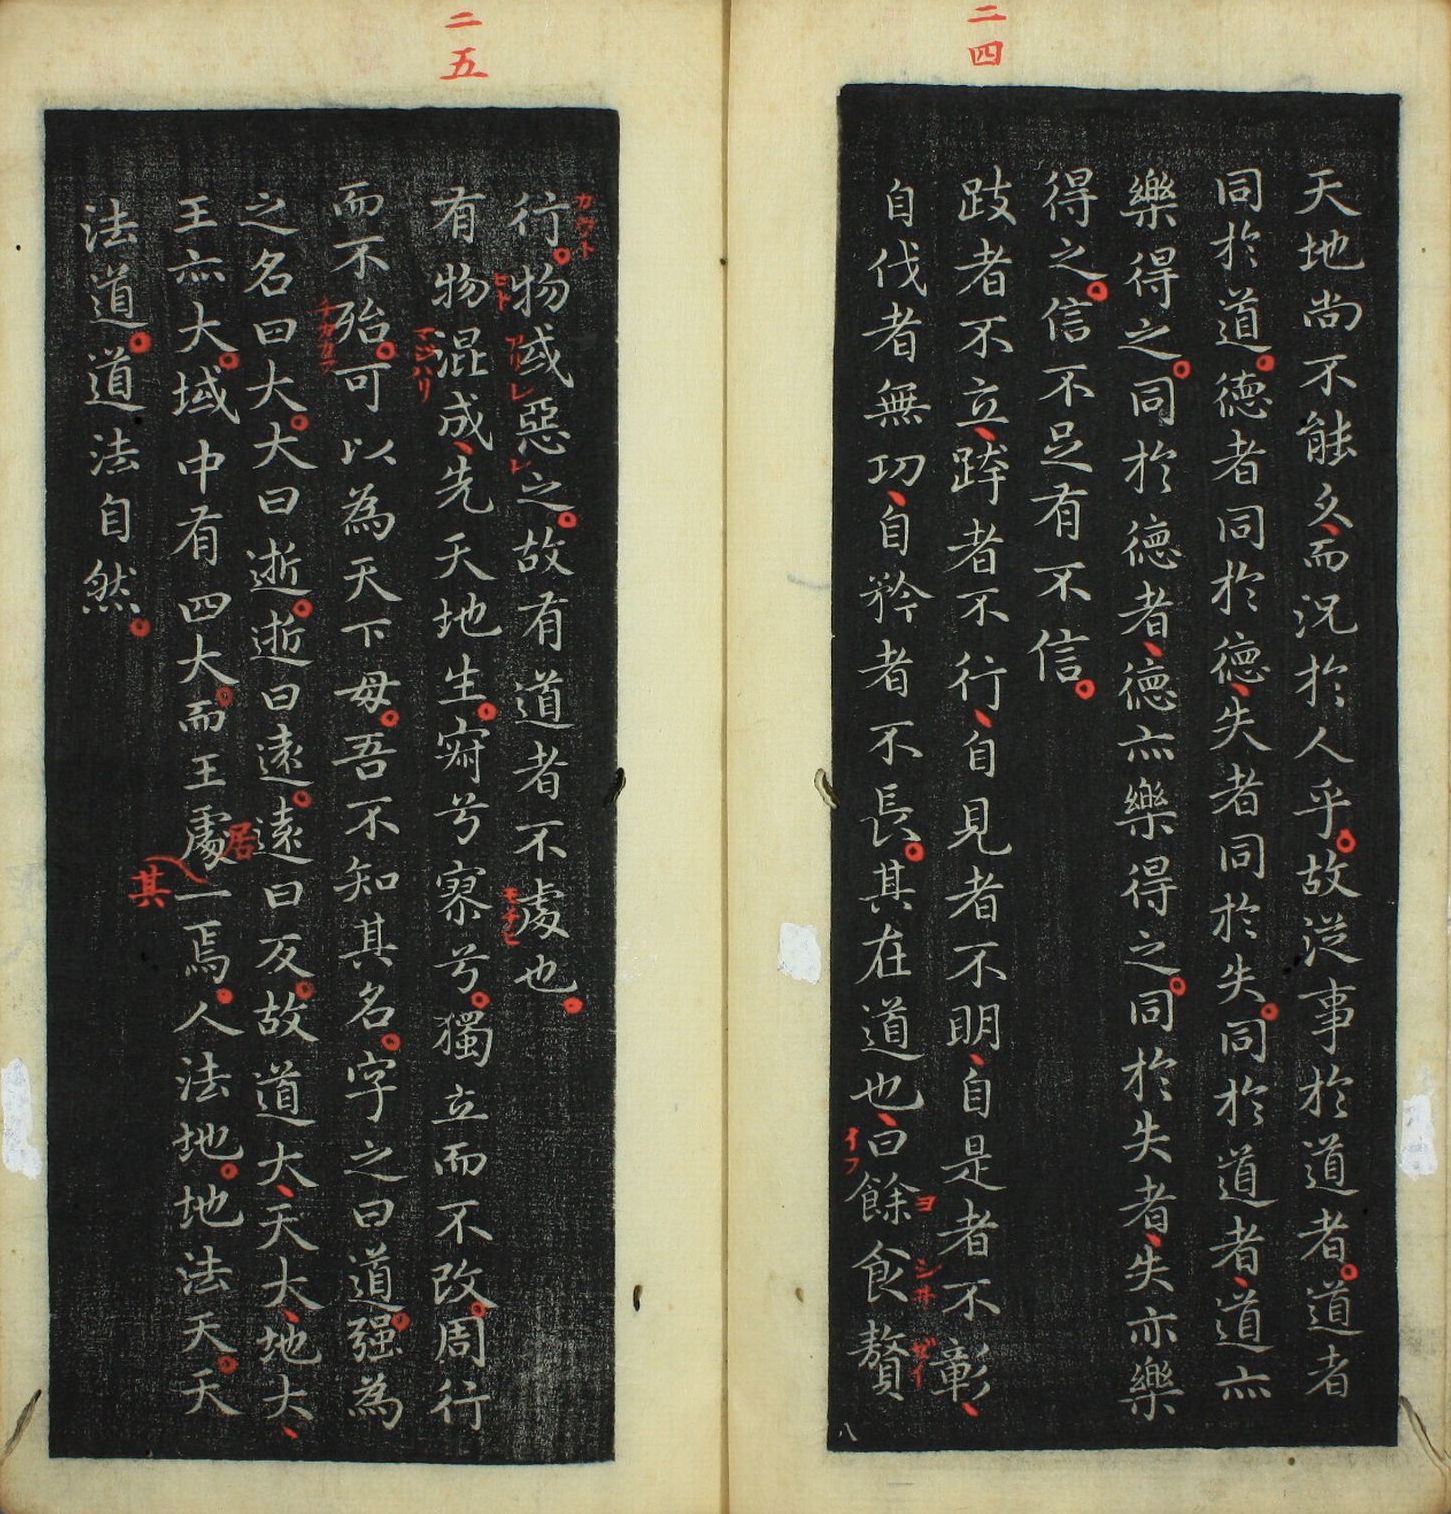 二四
天地尚不能久而況於人乎故從事於道者道者
同於道德者同於德失者同於失同於道者道亦
樂得之同於德者德亦樂得之同於失者失亦樂
得之信不足有不信
跂者不立跨者不行自見者不明自是者不彰
自伐者無功自矜者不長其在道也曰餘食贅
イフ
ヨ
シヰ
ゼイ
八
二五
行物或惡之故有道者不處也
有物混成先天地生寂兮寥兮獨立而不改周行
マジハリ
而不殆可以為天下母吾不知其名字之曰道强為
チカカラ
之名曰大大曰逝逝曰遠遠曰反故道大天大地大
王亦大域中有四大而王處一焉人法地地法天天
居
其
法道道法自然